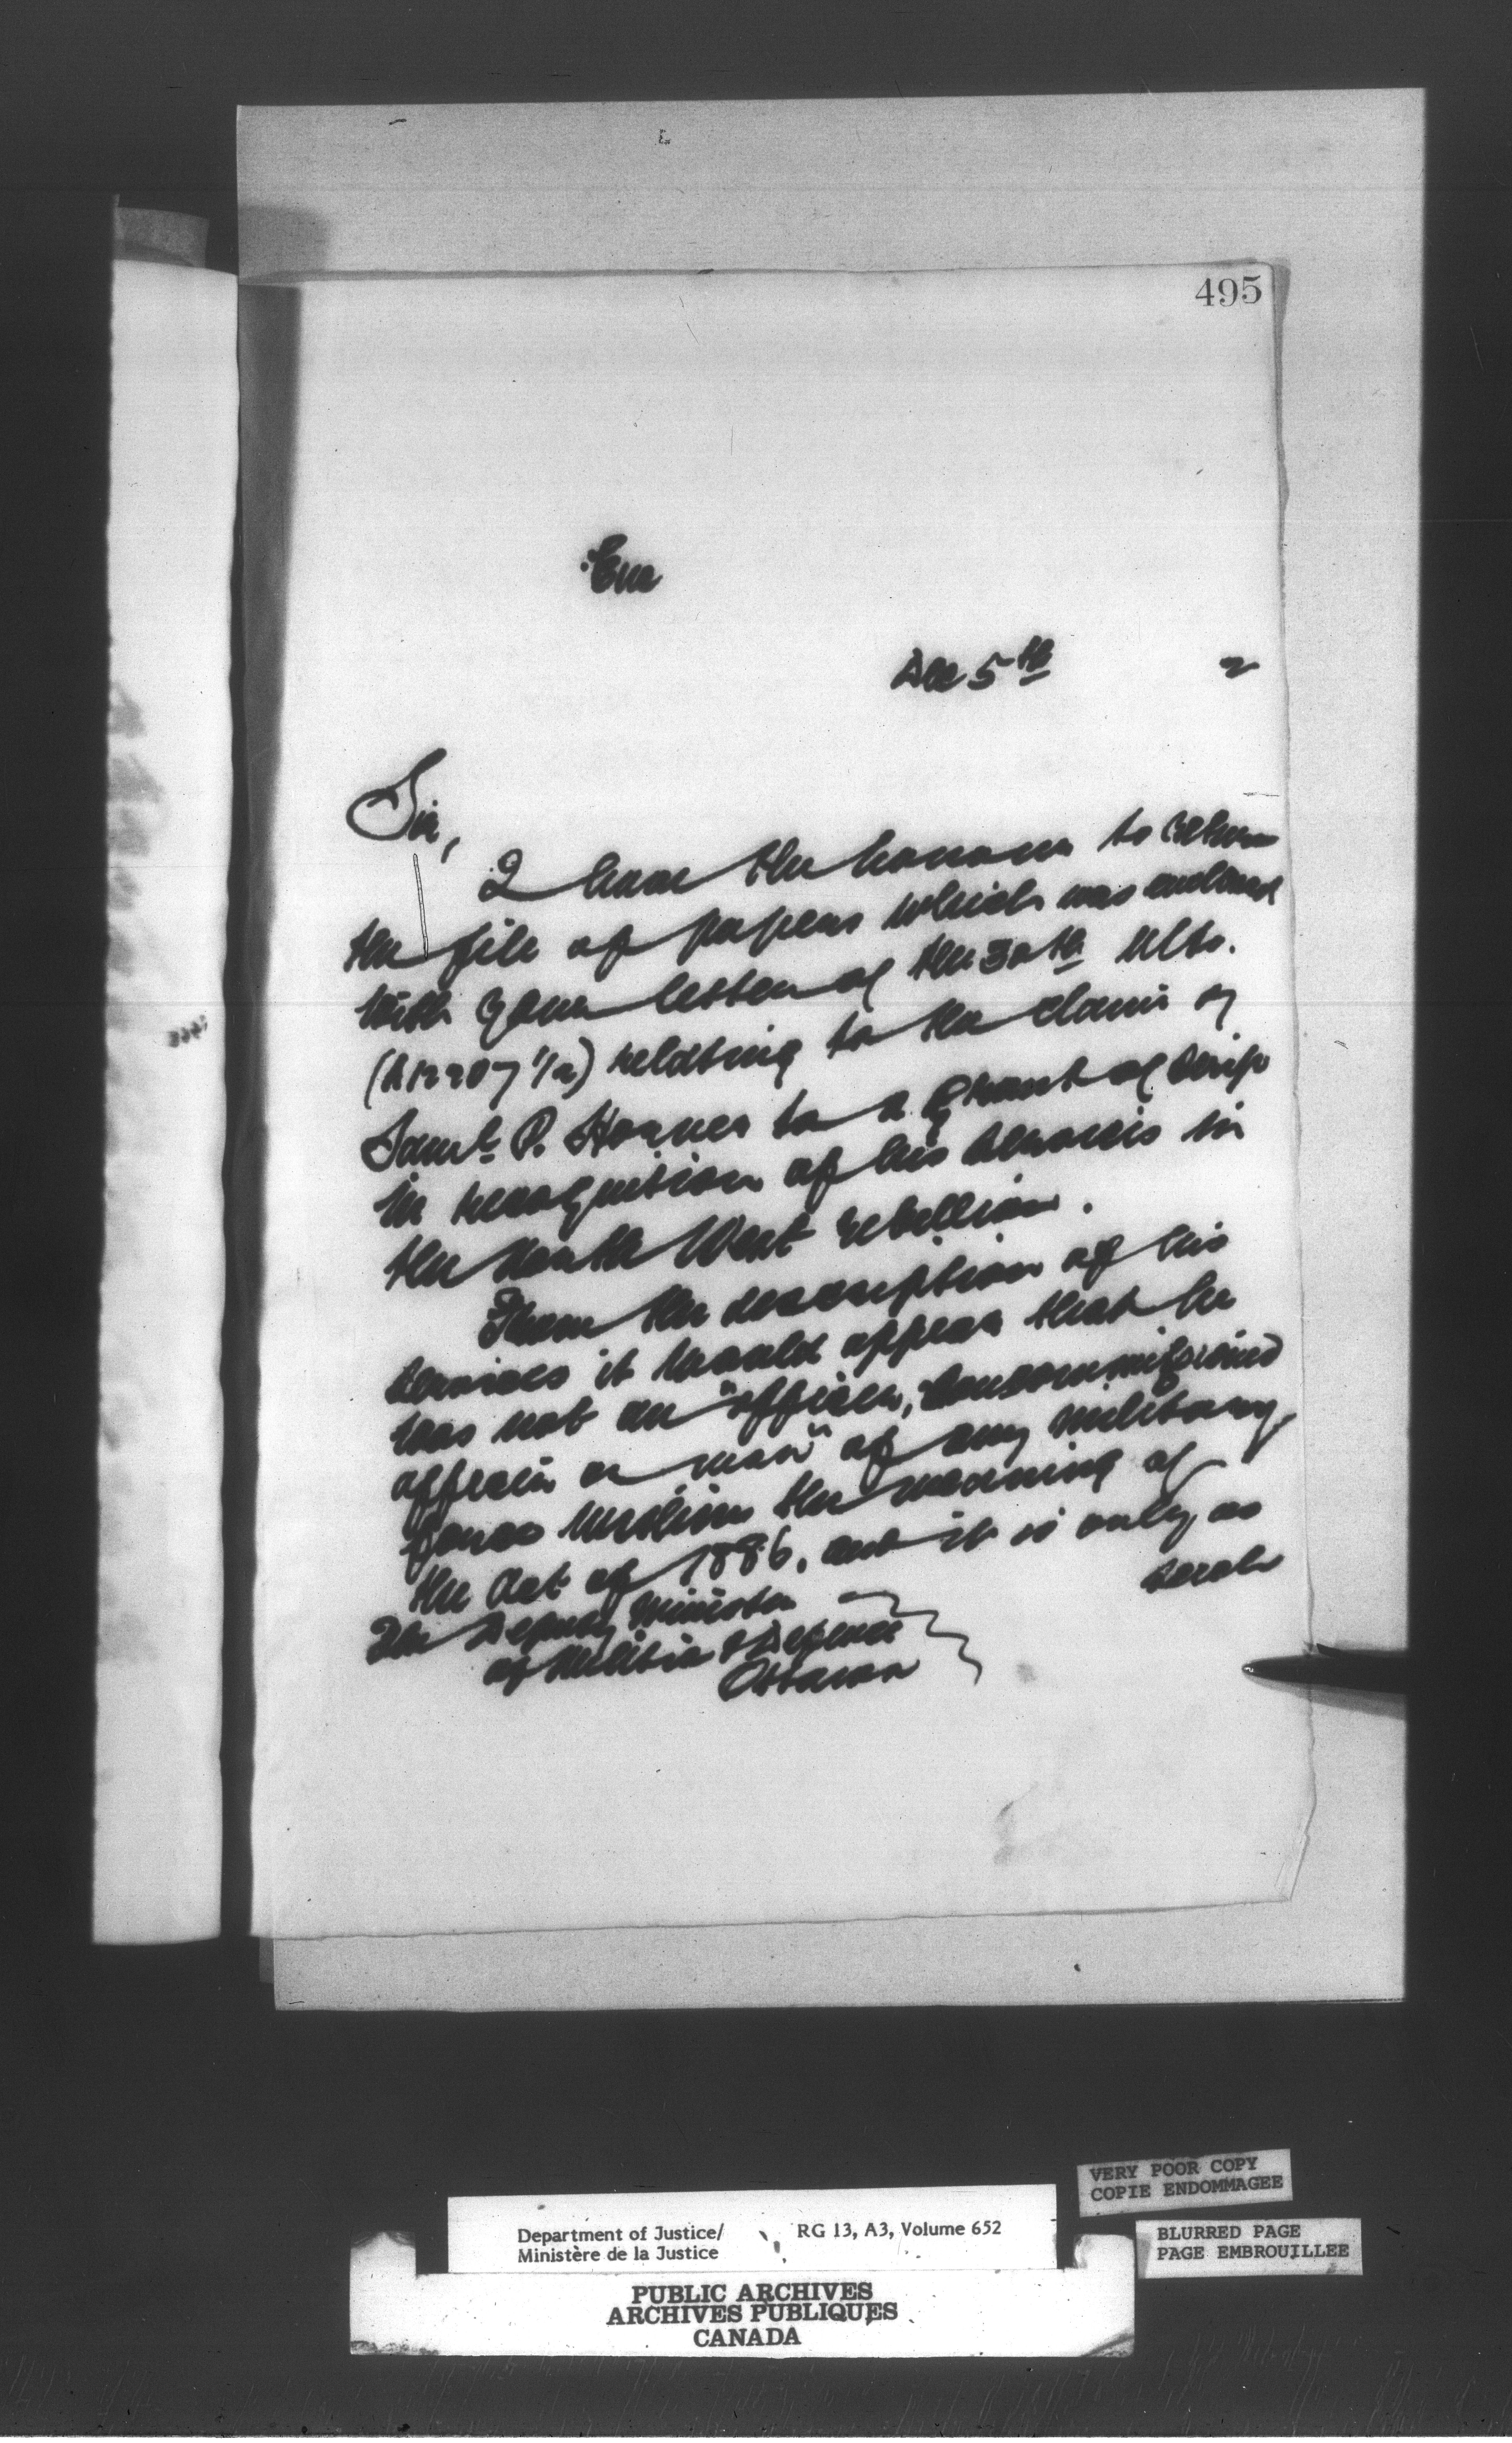 495
Enc
Dec 5th 2
Sir,
I have the honour to return
the file of papers which was enclosed
with your letter of the 30th Ulto.
(A12207 1/2) relating to the claim of
Saml. P. to a grant of Scrip
in recognition of his services in
the North West rebellion.
From the description of his
services it would appear that he
was not an "officer, noncommissioned
officer or man" of any military
force within the meaning of
the Act of 1886, and it is only as
such
The Deputy Minister
of Militia & Defence
Ottawa
VERY POOR COPY
COPIE ENDOMMAGEE
BLURRED PAGE
PAGE EMBROUILLEE
Department of Justice/ RG 13, A3, Volume 652
Ministère de la Justice
PUBLIC ARCHIVES
ARCHIVES PUBLIQUES
CANADA